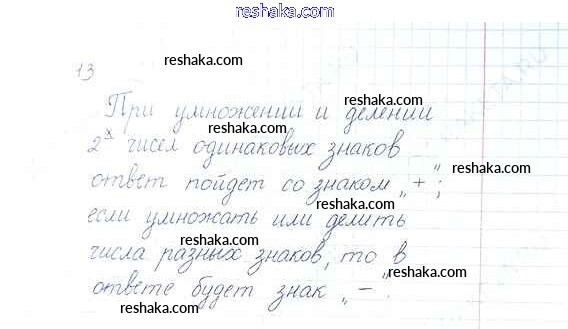 reshaka.com
13
reshaka.com
При умножении и делении
reshaka.com
2х чисел одинаковых знаков
reshaka.com
ответ пойдет со знаком „+";
reshaka.com
reshaka.com
если умножать или делить
reshaka.com
числа разных знаков, то в
reshaka.com
ответе будет знак „-".
reshaka.com